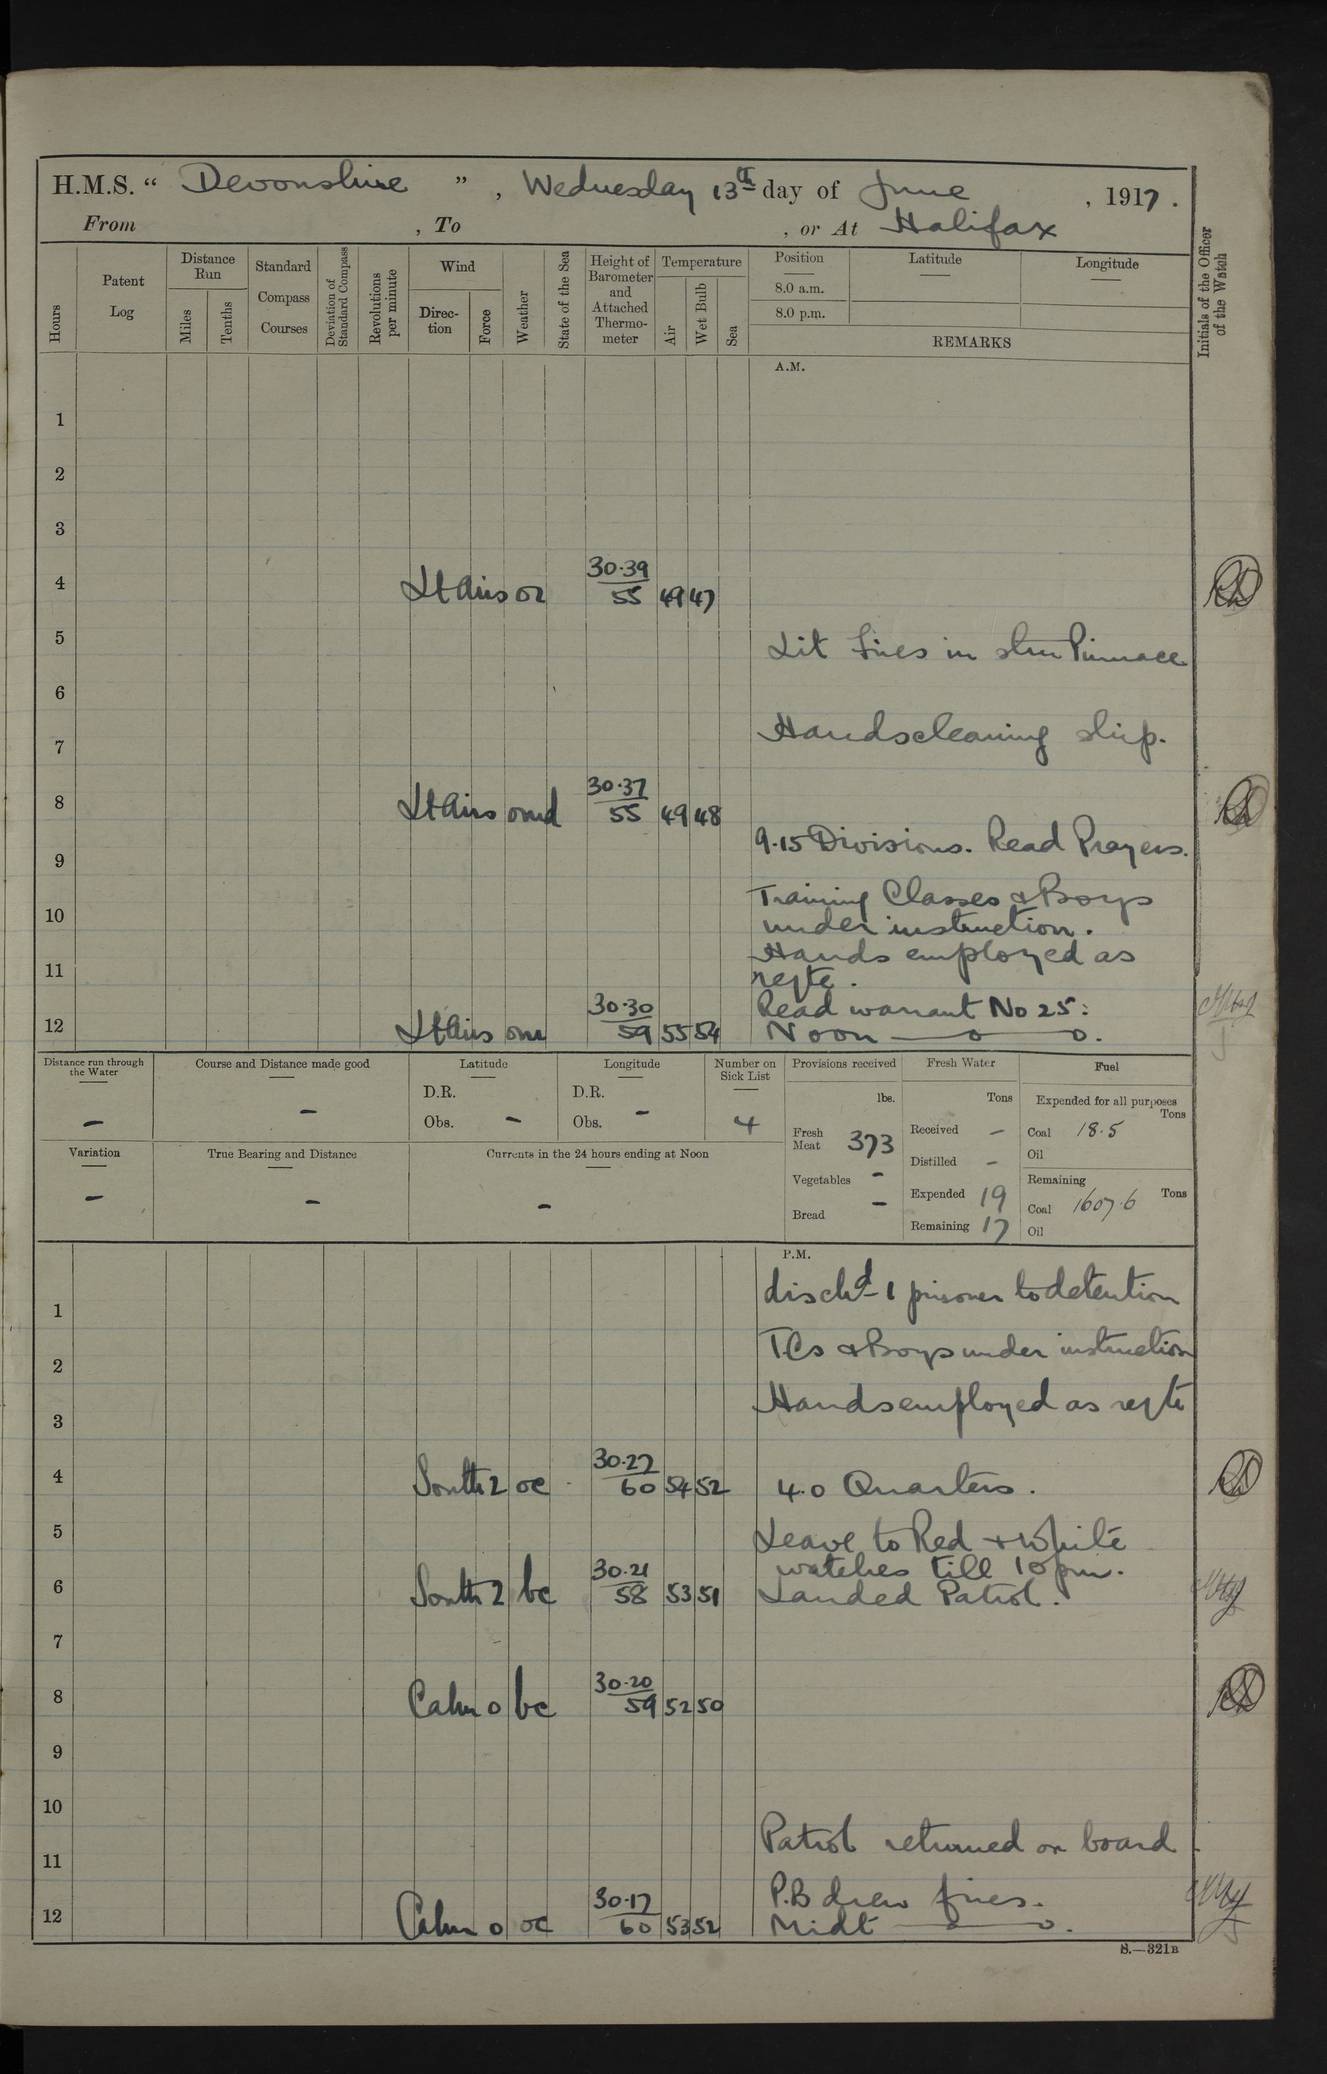 H.M.S. “ Devonshire ”, Wednesday 13th day of June, 1917.
From , To , or At Halifax
Hours
Patent Log
Distance Run
Miles
Tenths
Standard Compass Courses
Deviation of Standard Compass
Revolutions per minute
Wind
Direction
Force
Weather
State of the Sea
Height of Barometer and Attached Thermometer
Temperature
Air
Wet Bulb
Sea
Position
8.0 a.m.
8.0 p.m.
Latitude
Longitude
REMARKS
Initials of the Officer of the Watch
A.M.
1
2
3
4 Lt Airs 30.39 55 49 47
5 Lit fires in stm Pinnace
6
7 Hands cleaning ship.
8 Lt Airs omd 30.37 55 49 48
9 9.15 Divisions. Read Prayers.
10 Training Classes & Boys
under instruction.
11 Hands employed as
reqte.
Read warrant No 25:
12 Lt Airs om 30.30 59 55 54 Noon
Distance run through the Water
–
Course and Distance made good
–
Latitude
D.R.
Obs. –
Longitude
D.R. –
Obs.
Number on Sick List
4
Provisions received
lbs.
Fresh Meat 373
Vegetables –
Bread –
Fresh Water
Tons
Received –
Distilled –
Expended 19
Remaining 17
Fuel
Expended for all purposes
Tons
Coal 18.5
Oil
Remaining
Tons
Coal 1607.6
Oil
Variation
–
True Bearing and Distance
–
Currents in the 24 hours ending at Noon
–
P.M.
1 dischd 1 prisoner to detention
2 T.Cs & Boys under instruction
3 Hands employed as reqte
4 South 2 oc 30.27 60 54 52 4.0 Quarters.
5 Leave to Red & White
watches till 10 pm.
6 South 2 bc 30.21 58 53 51 Landed Patrol.
7
8 Calm 0 bc 30.20 59 52 50
9
10
11 Patrol returned on board.
P.B drew fires.
12 Calm 0 oc 30.17 60 53 52 Midt
S.—321B